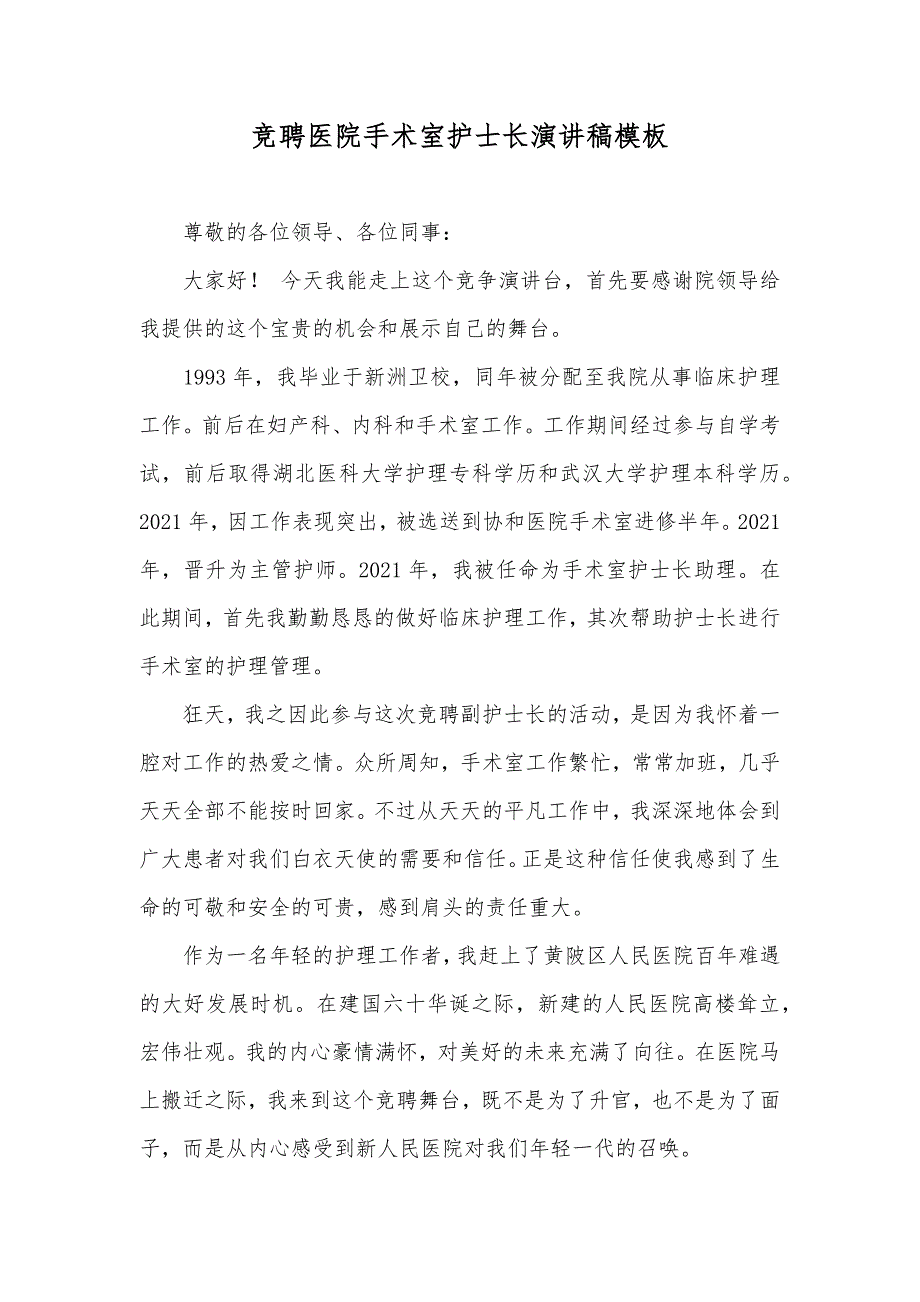 竞聘医院手术室护士长演讲稿模板
尊敬的各位领导、各位同事：
大家好！ 今天我能走上这个竞争演讲台，首先要感谢院领导给
我提供的这个宝贵的机会和展示自己的舞台。
1993 年，我毕业于新洲卫校，同年被分配至我院从事临床护理
工作。前后在妇产科、内科和手术室工作。工作期间经过参与自学考
试，前后取得湖北医科大学护理专科学历和武汉大学护理本科学历。
2021 年，因工作表现突出，被选送到协和医院手术室进修半年。2021
年，晋升为主管护师。2021 年，我被任命为手术室护士长助理。在
此期间，首先我勤勤恳恳的做好临床护理工作，其次帮助护士长进行
手术室的护理管理。
狂天，我之因此参与这次竞聘副护士长的活动，是因为我怀着一
腔对工作的热爱之情。众所周知，手术室工作繁忙，常常加班，几乎
天天全部不能按时回家。不过从天天的平凡工作中，我深深地体会到
广大患者对我们白衣天使的需要和信任。正是这种信任使我感到了生
命的可敬和安全的可贵，感到肩头的责任重大。
作为一名年轻的护理工作者，我赶上了黄陂区人民医院百年难遇
的大好发展时机。在建国六十华诞之际，新建的人民医院高楼耸立，
宏伟壮观。我的内心豪情满怀，对美好的未来充满了向往。在医院马
上搬迁之际，我来到这个竞聘舞台，既不是为了升官，也不是为了面
子，而是从内心感受到新人民医院对我们年轻一代的召唤。